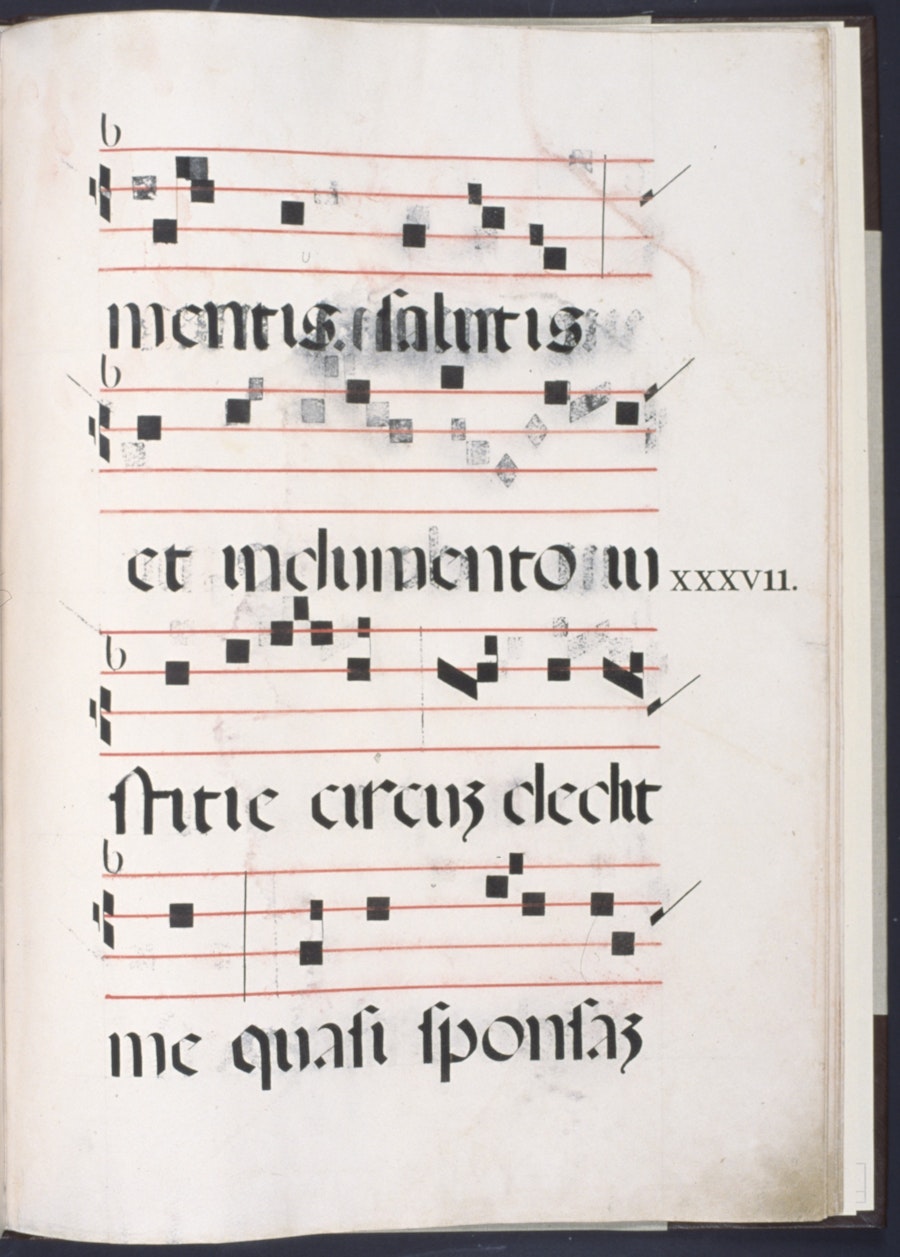 mentis. salutis
et indumento iu
XXXVII.
stitie circuʒ dedit
me quasi sponsaʒ